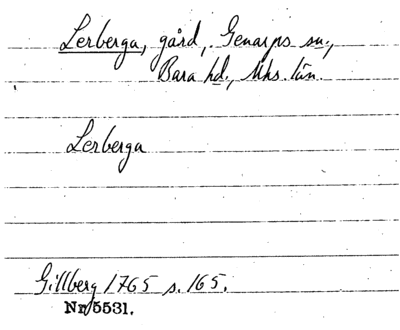 Lerberga, gård, Genarps sn.,
Bara hd., Mhs. län.
Lerberga
Gillberg 1765 s. 165.
Nr 5531.